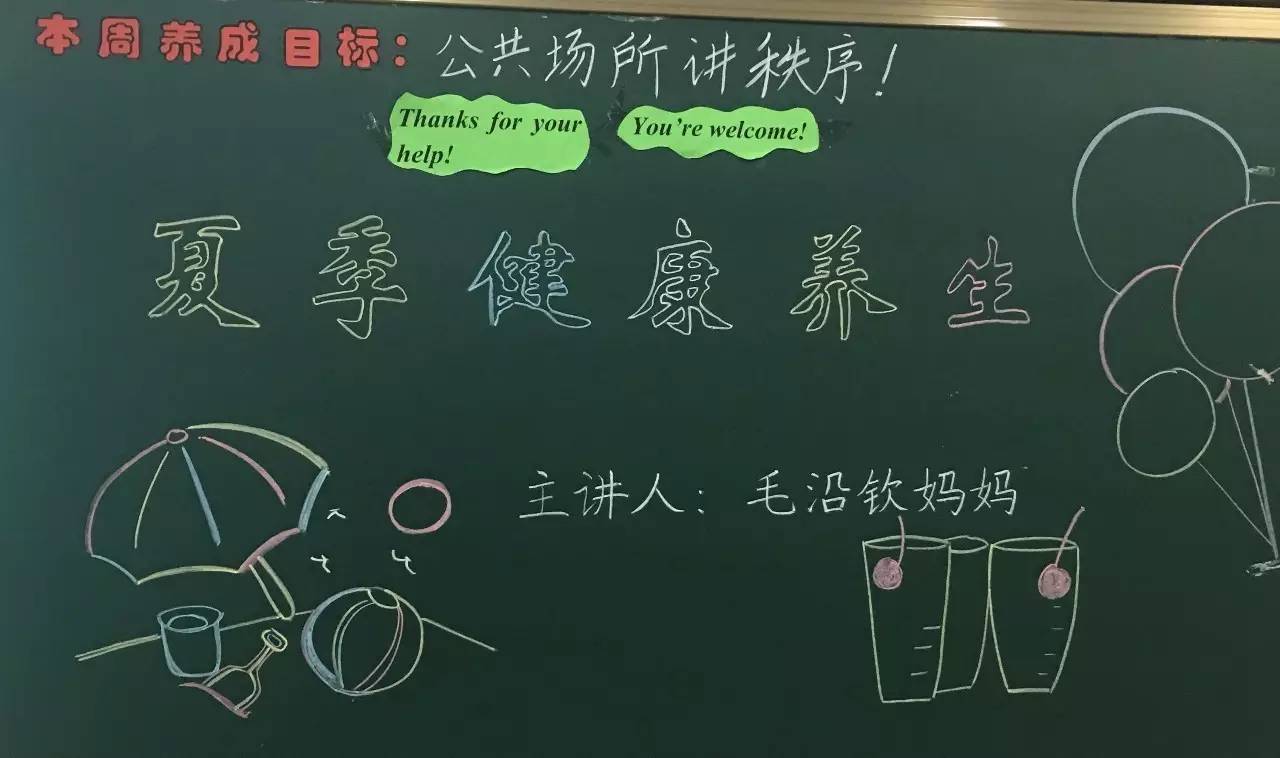 本周养成目标：公共场所讲秩序！
Thanks for your
help!
You're welcome!
夏季健康养生
主讲人：毛沿钦妈妈